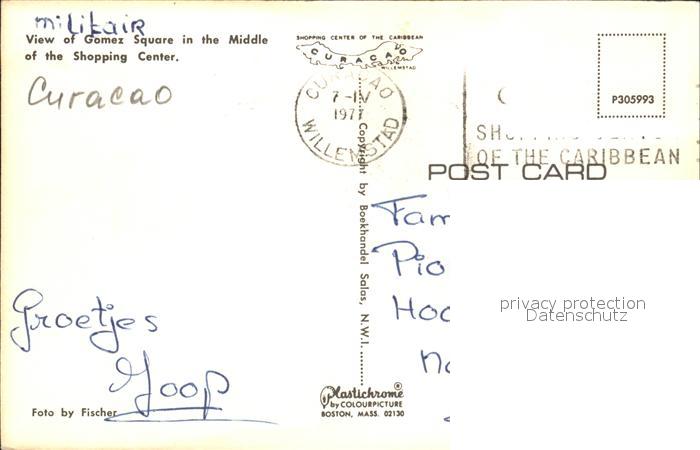 militair
View of Gomez Square in the Middle
of the Shopping Center.
Curacao
SHOPPING CENTER OF THE CARIBBEAN
CURACAO
WILLEMSTAD
CURACAO
7-IV
1977
WILLEMSTAD
P305993
OF THE CARIBBEAN
POST CARD
Copyright by Boekhandel Salas, N.W.I.
Fam
Pio
Hoo
privacy protection
Datenschutz
Groetjes
Joop
Foto by Fischer
Plastichrome®
by COLOURPICTURE
BOSTON, MASS. 02130